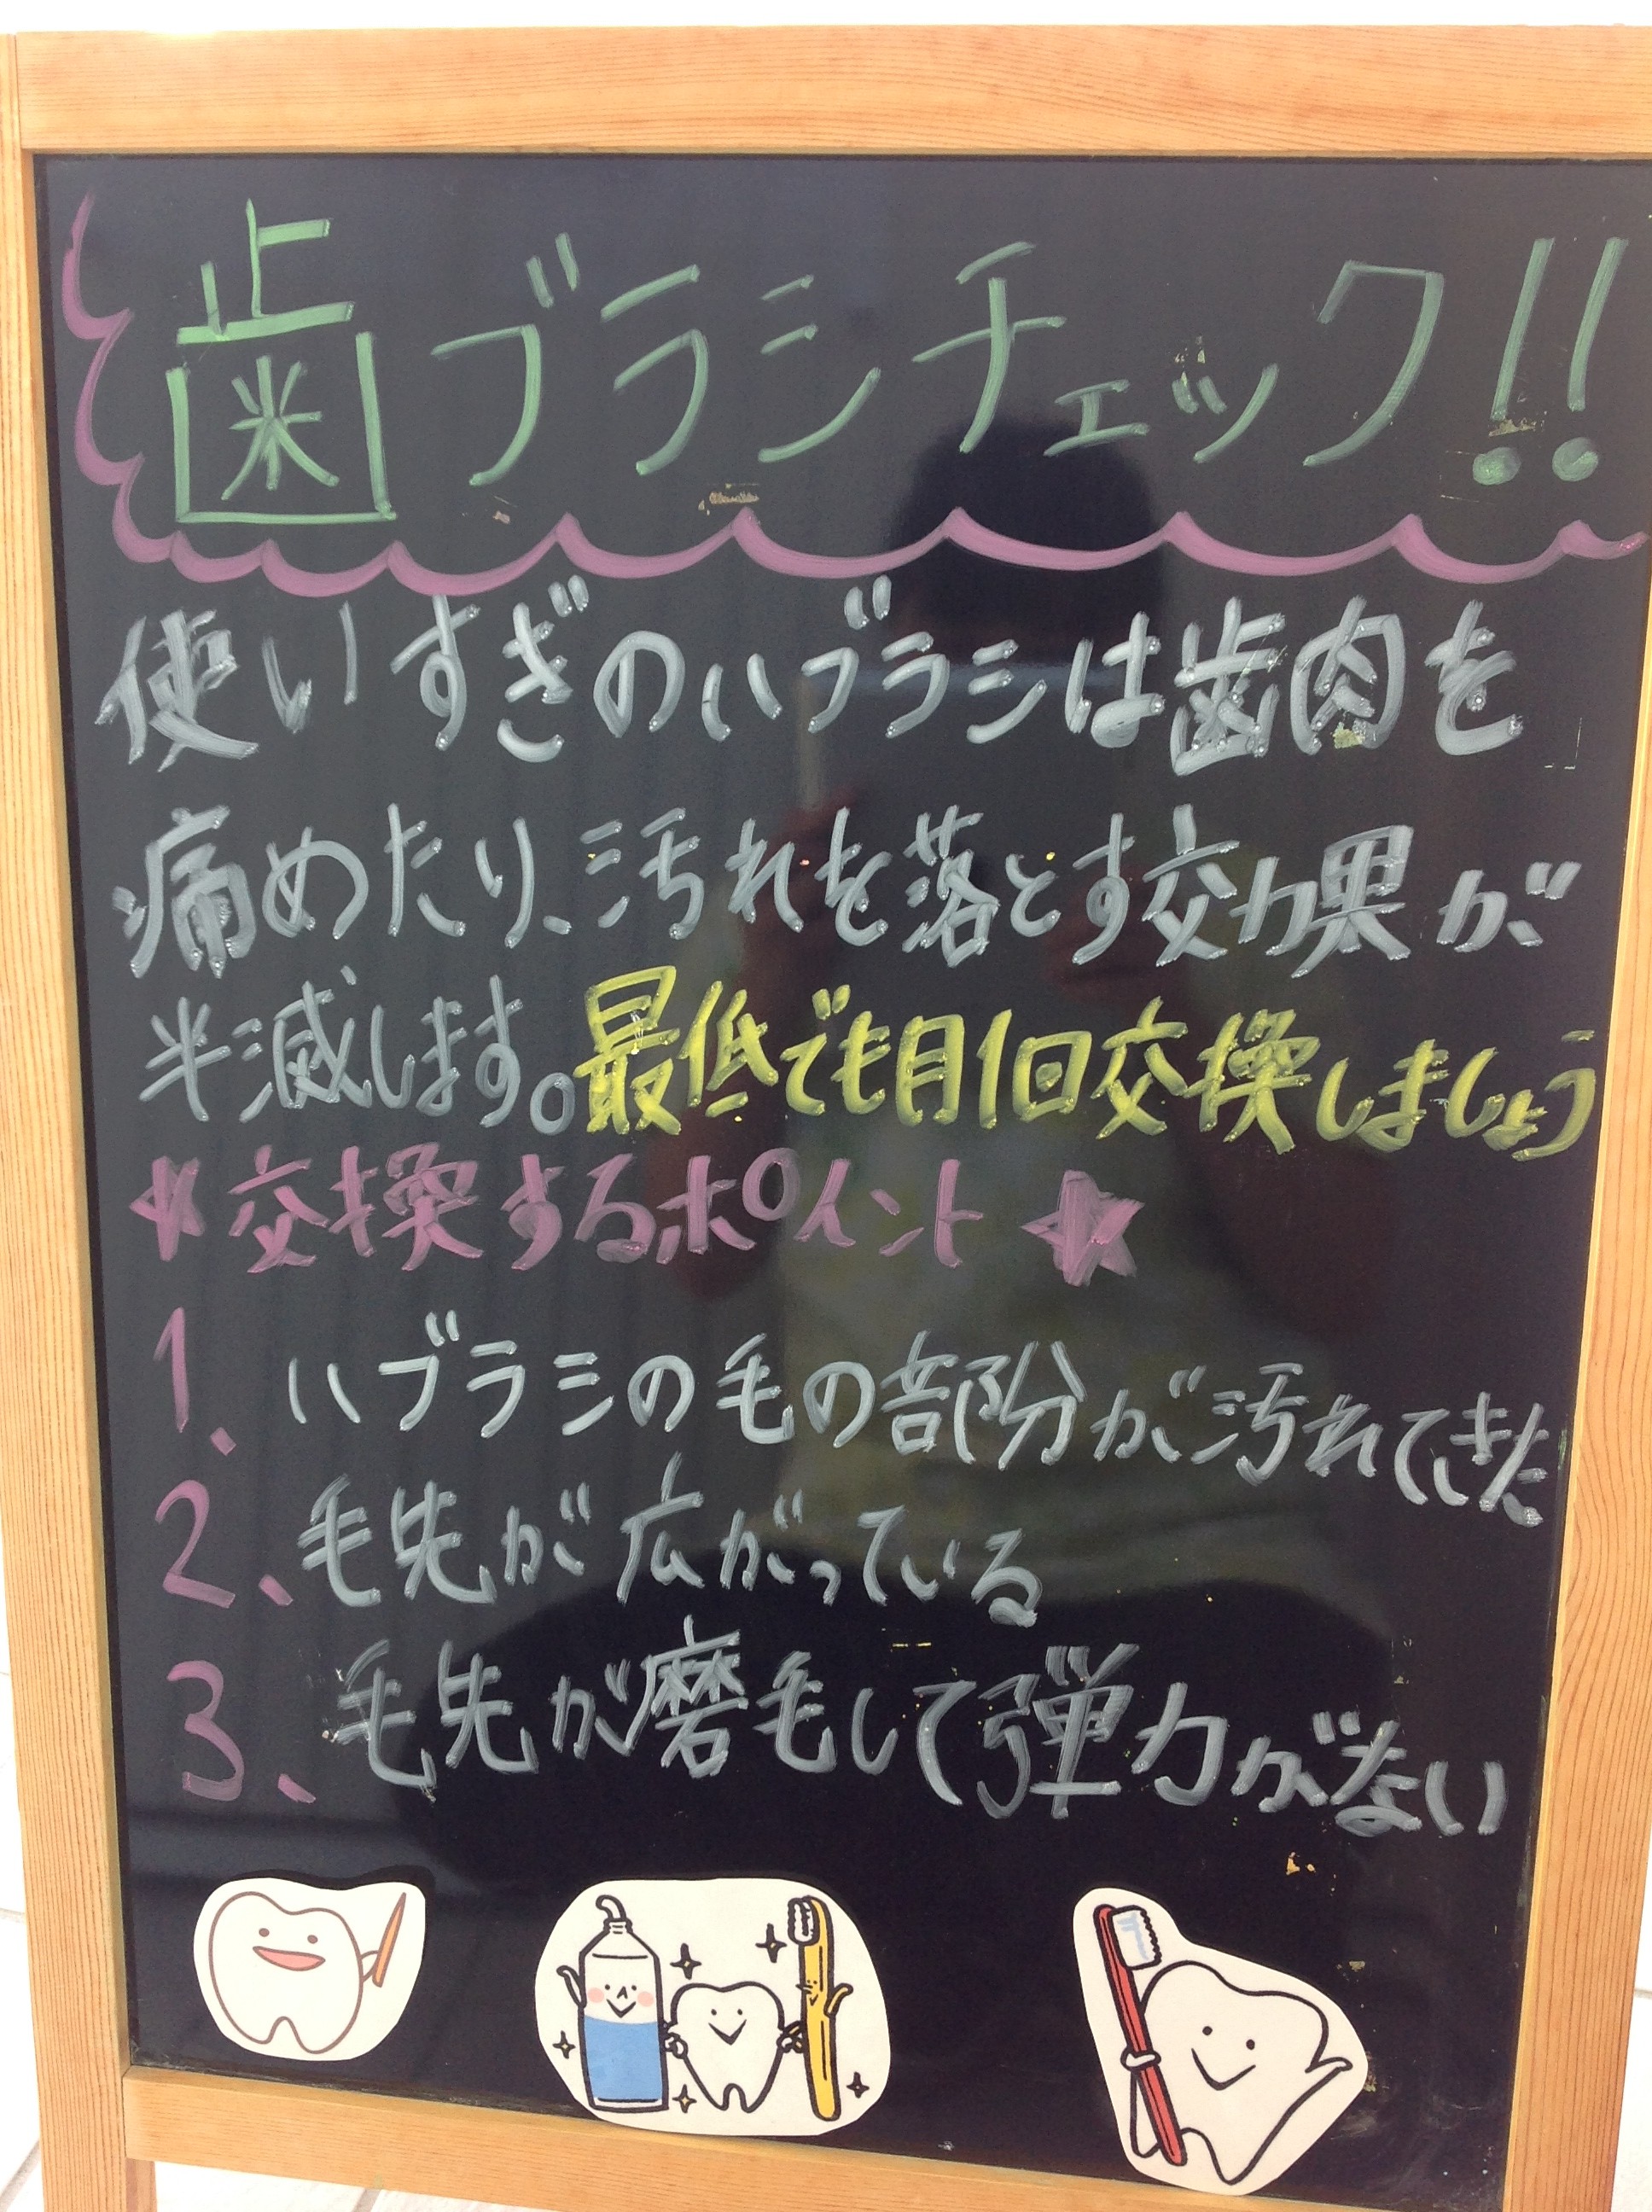 歯ブラシチェック!!
使いすぎのハブラシは歯肉を
痛めたり、汚れを落とす効果が
半減します。最低でも月1回交換しましょう
★交換するポイント★
1. ハブラシの毛の部分が汚れてきた
2、毛先が広がっている
3、毛先が磨毛して弾力がない